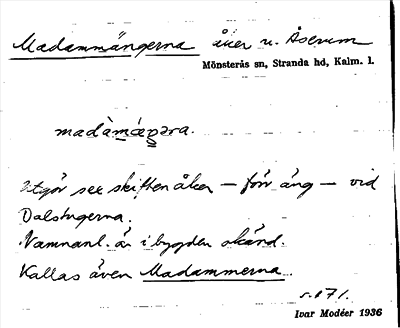 Madammängerna åker u. Åserum
Mönsterås sn, Stranda hd, Kalm. l.
madàmæŋəra.
Utgör sex skiften åker — förr äng — vid
Dalstugerna.
Namnanl. är i bygden okänd.
Kallas även Madammerna.
s. 171.
Ivar Modéer 1936